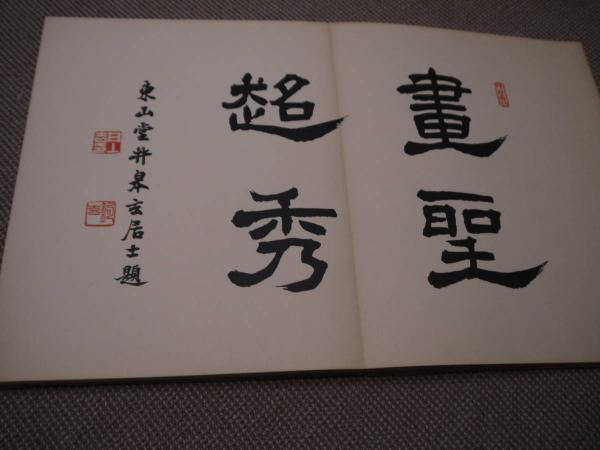 畫聖
超秀
東山堂井皋玄居士題